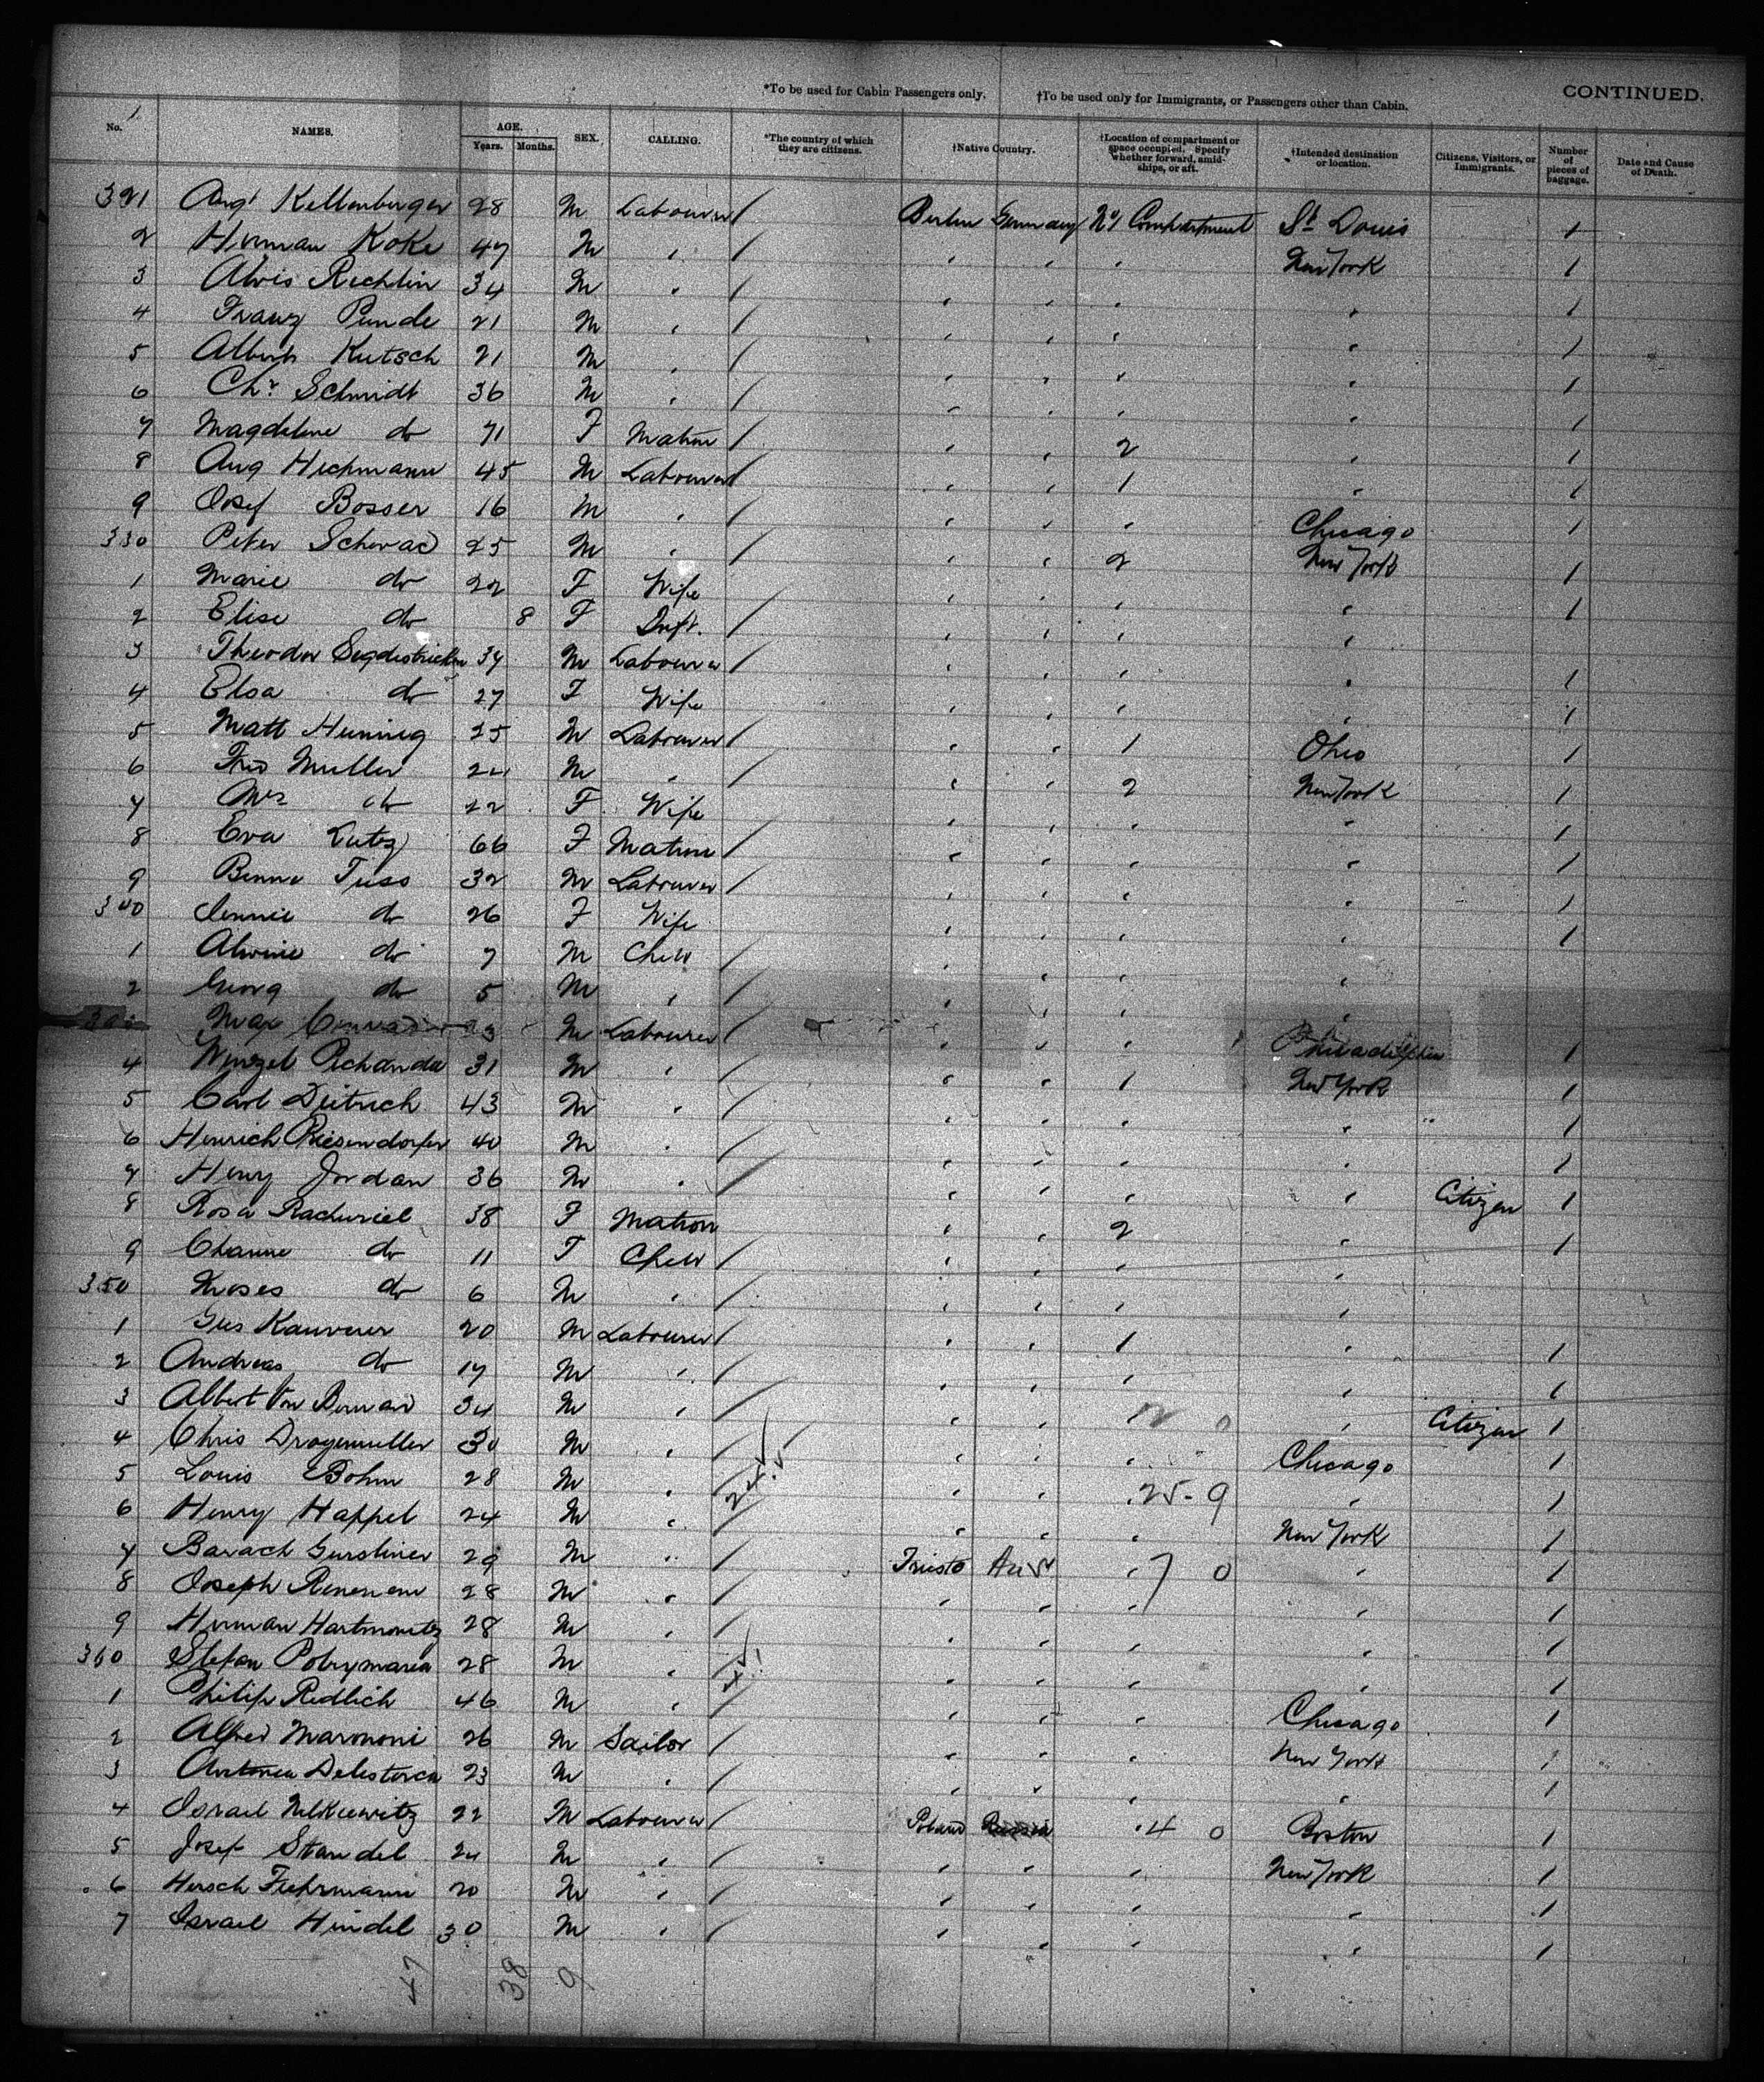 *To be used for Cabin Passengers only. †To be used only for Immigrants, or Passengers other than Cabin. CONTINUED.
No. NAMES. AGE. Years. Months. SEX. CALLING. *The country of which they are citizens. †Native Country. †Location of compartment or space occupied. Specify whether forward, amidships, or aft. †Intended destination or location. Citizens, Visitors, or Immigrants. Number of pieces of baggage. Date and Cause of Death.
321 Augt Kellenberger 28 M Labourer / Berlin Germany No 1 Compartment St Louis 1
2 Herman Koke 47 M " / " " " New York 1
3 Alvis Rechlin 34 M " / " " " " 1
4 Franz Punde 21 M " / " " " " 1
5 Albert Kutsch 21 M " / " " " " 1
6 Chr Schmidt 36 M " / " " " " 1
7 Magdalene do 71 F Matron / " " 2 " 1
8 Aug Hechmann 45 M Labourer / " " 1 " 1
9 Josef Bosser 16 M " / " " " Chicago 1
330 Peter Schwad 25 M " / " " 2 New York 1
1 Marie do 22 F Wife " " " " 1
2 Elise do 8 F Inft. / " " " "
3 Theodor 34 M Labourer / " " " " 1
4 Elsa do 27 F Wife " " " " 1
5 Matt Henning 25 M Labourer / " " 1 Ohio 1
6 Fred Muller 24 M " / " " 2 New York 1
7 Mrs do 22 F Wife " " " " 1
8 Eva Lutz 66 F Matron / " " " " 1
9 Benno Tuss 32 M Labourer / " " " " 1
340 Jennie do 26 F Wife " " " " 1
1 Alwine do 7 M Child / " " " "
2 Georg do 5 M " / " " " "
3 Max Conrad 23 M Labourer / " " " Philadelphia 1
4 Wenzel 31 M " / " " 1 New York 1
5 Carl Deitrich 43 M " / " " " " 1
6 Henrich Riesendorfer 40 M " / " " " " 1
7 Henry Jordan 36 M " / " " " " Citizen 1
8 Rosa 38 F Matron " " 2 " 1
9 Channe do 11 F Child / " " " "
350 Moses do 6 M " / " " " "
1 Gus Kauverer 20 M Labourer / " " 1 " 1
2 Andreas do 17 M " / " " " " 1
3 Albert Von Bernard 34 M " / " " " " Citizen 1
4 Chris Drogemuller 30 M " / " " " Chicago 1
5 Louis Bohm 28 M " / " " 25-9 " 1
6 Henry Happel 24 M " / " " " New York 1
7 Barach Gursliner 29 M " / Triest Aus " 7 0 " 1
8 Joseph 28 M " / " " " " 1
9 Herman Hartmovitz 28 M " / " " " " 1
360 Stefan 28 M " / " " " " 1
1 Philip Redlich 46 M " / " " " Chicago 1
2 Alfred Maronomi 26 M Sailor / " " " New York 1
3 23 M " / " " " " 1
4 Israel 22 M Labourer / Poland Russia " 4 0 Boston 1
5 Josef Standel 24 M " / " " " New York 1
6 Hersch Fuhrmann 20 M " / " " " " 1
7 Israel Hindel 30 M " / " " " " 1
47 38 9